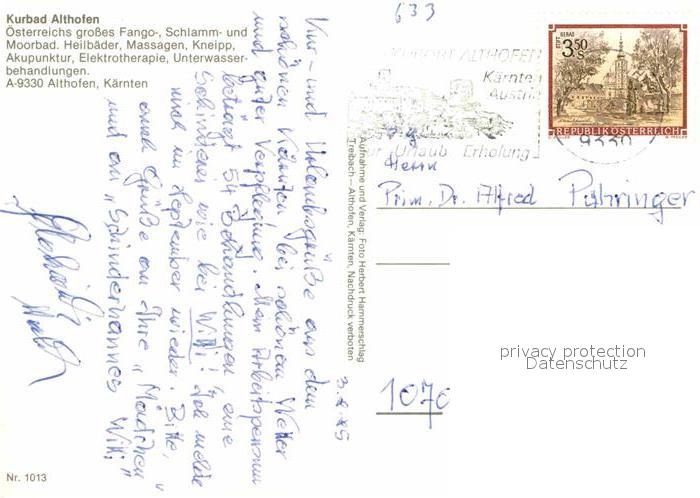 Kurbad Althofen
Österreichs großes Fango-, Schlamm- und
Moorbad. Heilbäder, Massagen, Kneipp,
Akupunktur, Elektrotherapie, Unterwasser-
behandlungen.
A-9330 Althofen, Kärnten
633
STIFT GERAS
3.50
S
REPUBLIK ÖSTERREICH
KURORT ALTHOFEN
Kärnten
Austria
Urlaub Erholung
9330
Herrn
Prim. Dr. Alfred Pühringer
1070
privacy protection
Datenschutz
Aufnahme und Verlag: Foto Herbert Hammerschlag
Treibach–Althofen, Kärnten, Nachdruck verboten
Kur- und Urlaubsgrüße aus dem
schönen Kärnten bei schönem Wetter
und guter Verpflegung. Mein Arbeitspensum
beträgt 54 Behandlungen, eine
Schinderei wie bei Willi! Ich melde
mich im September wieder. Bitte,
auch Grüße an Ihre "Mädchen"
und an "Schinderhannes Willi"
Nr. 1013